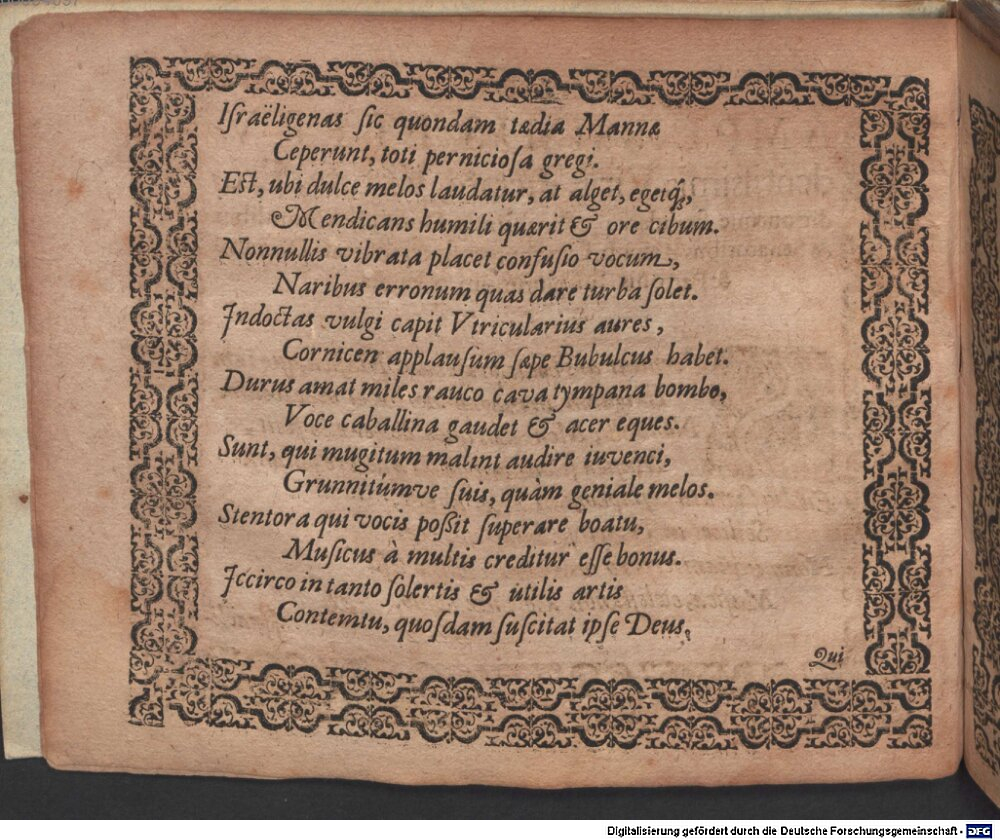 Iſraëligenas ſic quondam tædia Mannæ
Ceperunt, toti pernicioſa gregi.
Eſt, ubi dulce melos laudatur, at alget, egetq́;,
Mendicans humili quærit & ore cibum.
Nonnullis vibrata placet confuſio vocum,
Naribus erronum quas dare turba ſolet.
Indoctas vulgi capit Vtricularius aures,
Cornicen applauſum ſæpe Bubulcus habet.
Durus amat miles rauco cava tympana bombo,
Voce caballina gaudet & acer eques.
Sunt, qui mugitum malint audire iuvenci,
Grunnitúmve ſuis, quàm geniale melos.
Stentora qui vocis poßit ſuperare boatu,
Muſicus à multis creditur eſſe bonus.
Iccirco in tanto ſolertis & utilis artis
Contemtu, quoſdam ſuſcitat ipſe Deus,
Qui
Digitalisierung gefördert durch die Deutsche Forschungsgemeinschaft - DFG